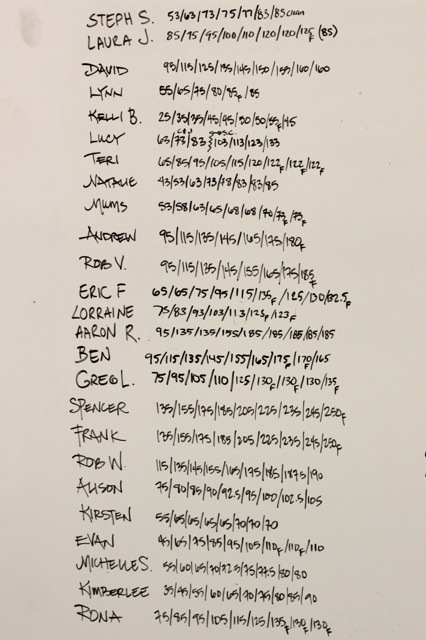 STEPH S. 53/63/73/75/77/83/85 clean
LAURA J. 85/75/95/100/110/120/120/125F (85)
DAVID 95/115/125/135/145/150/155/160/160
LYNN 55/65/75/80/85F/85
KELLI B. 25/35/35/45/45/50/50/55F/45
LUCY 63/73/83 103/113/123/133
TERI 65/85/95/105/115/120/122F/122F/122F
NATALIE 43/53/63/73/78/83/83/85
MIMS 53/58/63/65/68/68/70/73F/73F
ANDREW 95/115/135/145/165/175/180F
ROB V. 95/115/135/145/155/165/175/185F
ERIC F 65/65/75/95/115/135F/125/130/132.5F
LORRAINE 75/83/93/103/113/123F/123F
AARON R. 95/135/135/155/185/185/185/185/185
BEN 95/115/135/145/155/165/175F/170F/165
GREG L. 75/95/105/110/125/130F/130F/130/135F
SPENCER 135/155/175/185/205/225/235/245/250F
FRANK 135/155/175/185/205/225/235/245/250F
ROB W. 115/135/145/155/165/175/185/187.5/190
ALISON 75/80/85/90/92.5/95/100/102.5/105
KIRSTEN 55/65/65/65/65/70/70/70
EVAN 45/65/75/85/95/105/110F/110F/110
MICHELLE S. 55/60/65/70/72.5/75/77.5/80/80
KIMBERLEE 35/45/55/60/65/70/75/80/85/90
RONA 75/85/95/105/115/125/135F/130F/130F